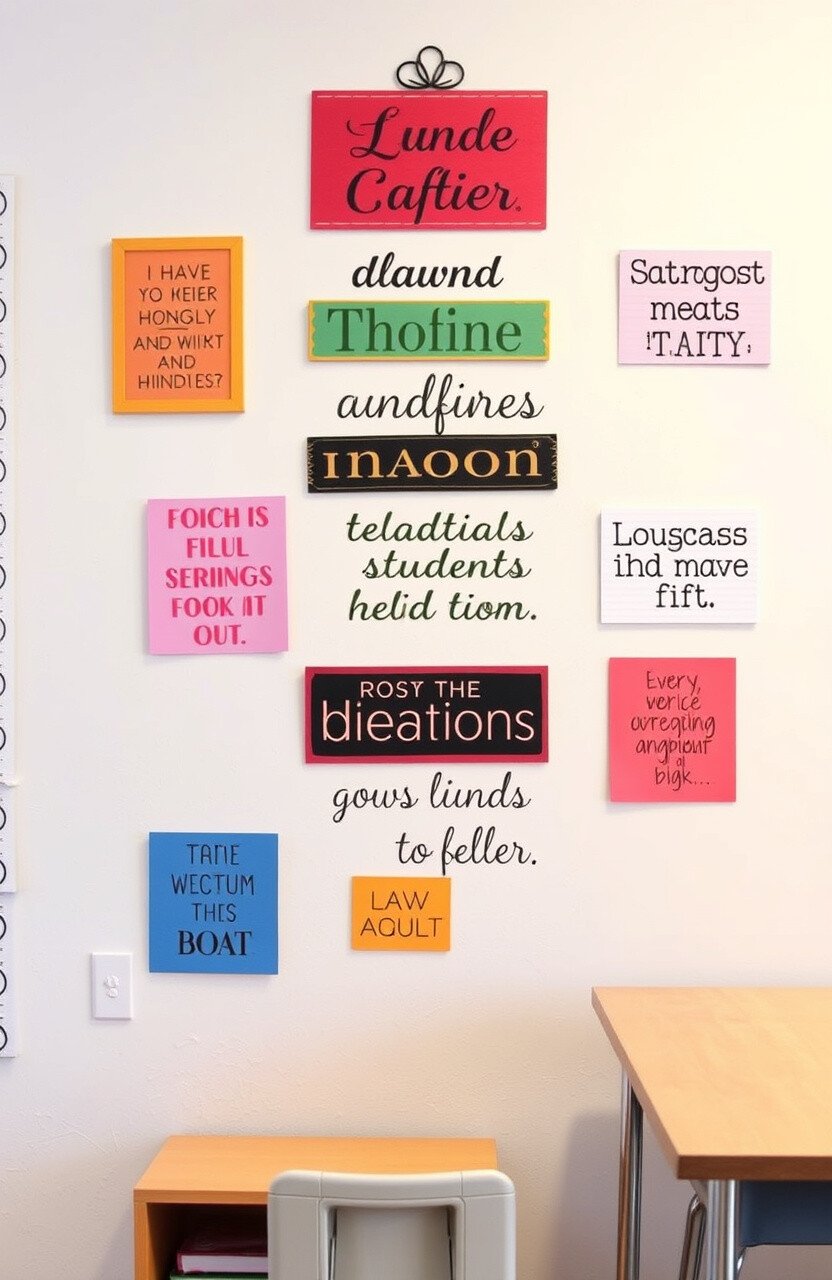 Lunde
Caftier.
dlawnd
Thofine
aundfines
INAOON
teladtials
students
helid tiom.
ROSY THE
bieations
gows liunds
to feller.
LAW
AQULT
I HAVE
YO KEIER
HONGLY
AND WIIKT
AND
HINDIES?
FOICH IS
FILUL
SERIINGS
FOOK IIT
OUT.
TATIE
WECTUM
THIS
BOAT
Satrogost
meats
TAITY
Lousçass
ihd mave
fift.
Every,
verice
ovreguing
bigk...